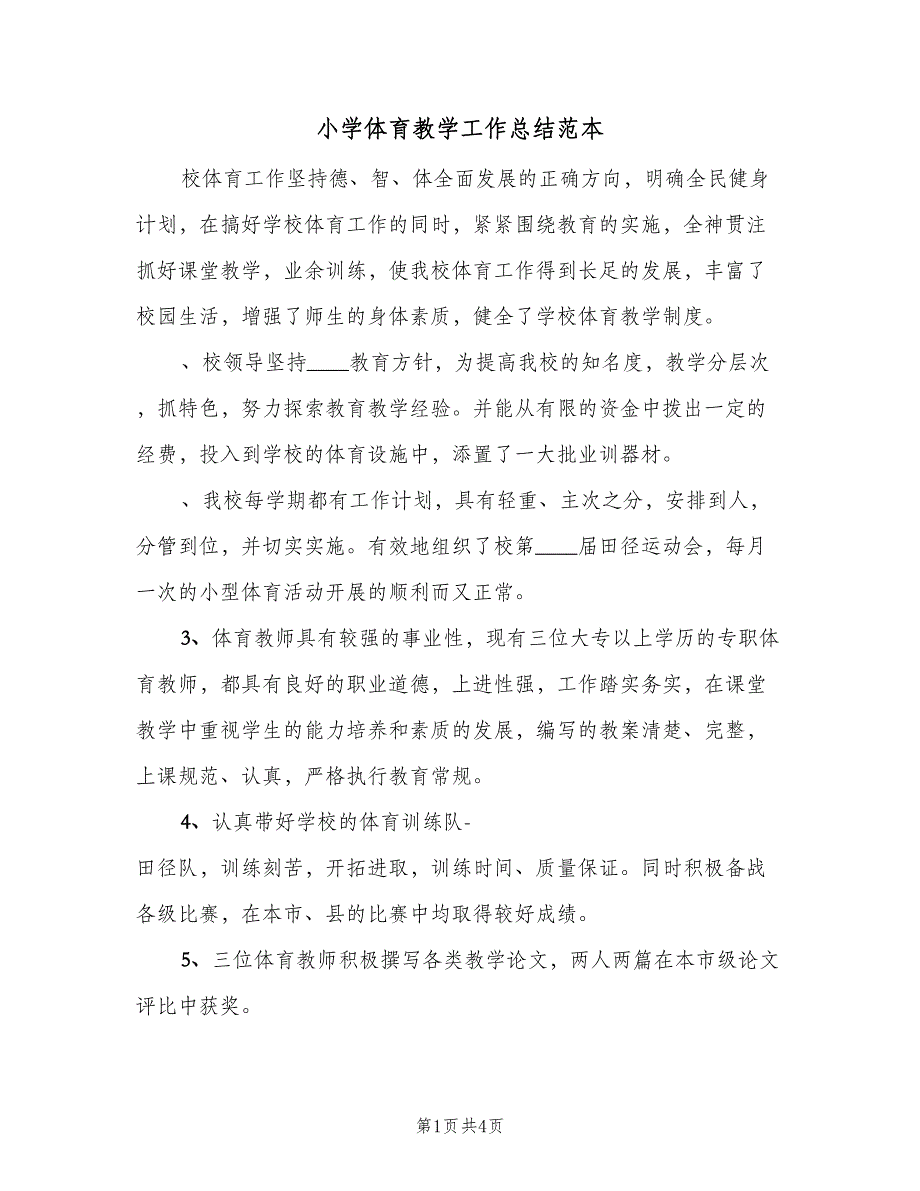 小学体育教学工作总结范本
校体育工作坚持德、智、体全面发展的正确方向，明确全民健身
计划，在搞好学校体育工作的同时，紧紧围绕教育的实施，全神贯注
抓好课堂教学，业余训练，使我校体育工作得到长足的发展，丰富了
校园生活，增强了师生的身体素质，健全了学校体育教学制度。
、校领导坚持____教育方针，为提高我校的知名度，教学分层次
，抓特色，努力探索教育教学经验。并能从有限的资金中拨出一定的
经费，投入到学校的体育设施中，添置了一大批业训器材。
、我校每学期都有工作计划，具有轻重、主次之分，安排到人，
分管到位，并切实实施。有效地组织了校第____届田径运动会，每月
一次的小型体育活动开展的顺利而又正常。
3、体育教师具有较强的事业性，现有三位大专以上学历的专职体
育教师，都具有良好的职业道德，上进性强，工作踏实务实，在课堂
教学中重视学生的能力培养和素质的发展，编写的教案清楚、完整，
上课规范、认真，严格执行教育常规。
4、认真带好学校的体育训练队-
田径队，训练刻苦，开拓进取，训练时间、质量保证。同时积极备战
各级比赛，在本市、县的比赛中均取得较好成绩。
5、三位体育教师积极撰写各类教学论文，两人两篇在本市级论文
评比中获奖。
第1页共4页